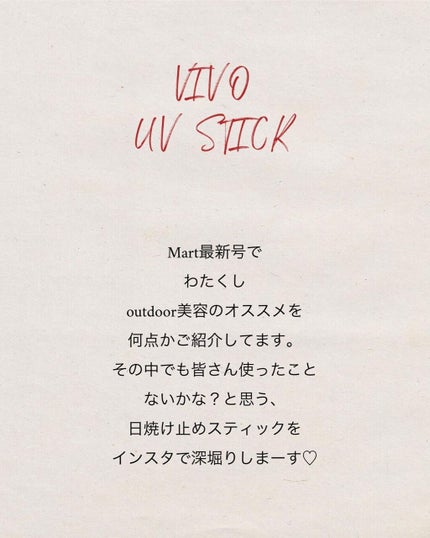 VIVO
UV STICK
Mart最新号で
わたくし
outdoor美容のオススメを
何点かご紹介してます。
その中でも皆さん使ったこと
ないかな？と思う、
日焼け止めスティックを
インスタで深堀りしまーす♡